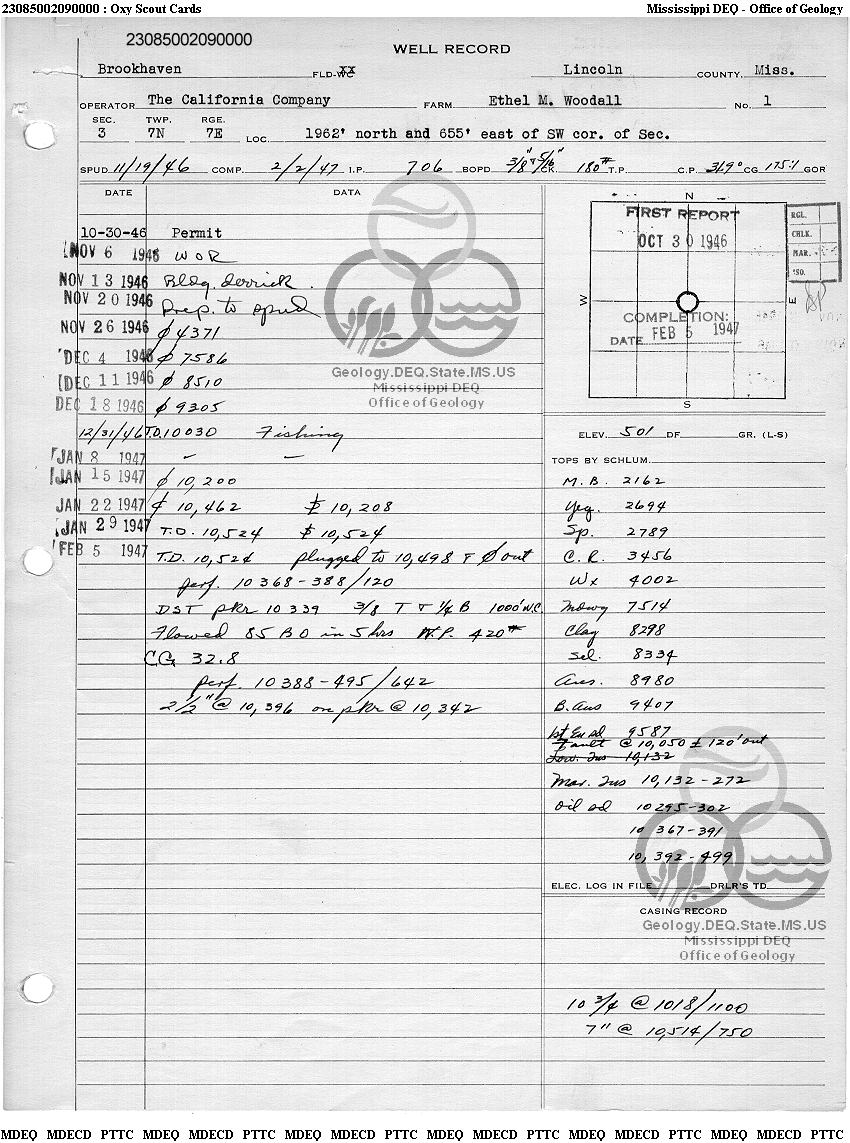 23085002090000 : Oxy Scout Cards Mississippi DEQ - Office of Geology
23085002090000
WELL RECORD
Brookhaven FLD-WC xx Lincoln COUNTY, Miss.
OPERATOR The California Company FARM Ethel M. Woodall No. 1
SEC. TWP. RGE.
3 7N 7E LOC. 1962' north and 655' east of SW cor. of Sec.
SPUD 11/19/46 COMP. 2/2/47 I.P. 706 BOPD 3/8" & 5/16" CK. 180# T.P. C.P. 31.9° CG 175:1 GOR
DATE DATA
10-30-46 Permit
NOV 6 1946 WOR
NOV 13 1946 Bldg. derrick.
NOV 20 1946 Prep. to spud
NOV 26 1946 ϕ 4371
DEC 4 1946 ϕ 7586
DEC 11 1946 ϕ 8510
DEC 18 1946 ϕ 9205
12/31/46 T.D. 10030 Fishing
JAN 8 1947 – –
JAN 15 1947 ϕ 10,200
JAN 22 1947 ϕ 10,462 10,208
JAN 29 1947 T.D. 10,524 10,524
FEB 5 1947 T.D. 10,524 plugged to 10,498 & ϕ out
perf. 10368-388/120
DST pkr 10339 3/8 T & 1/4 B 1000' W.C.
Flowed 85 BO in 5 hrs W.P. 420#
CG 32.8
perf. 10388-495/642
2 1/2" @ 10,396 on pkr @ 10,342
N
FIRST REPORT
OCT 30 1946
RGL.
CHLK.
MAR.
W E
COMPLETION:
DATE FEB 5 1947
S
ELEV. 501 DF GR. (L-S)
TOPS BY SCHLUM.
M.B. 2162
Yeg. 2694
Sp. 2789
C.R. 3456
Wx 4002
Mdwy 7514
Clay 8298
Sel. 8334
Aus. 8980
B. Aus 9407
1st Eu sd 9587
Fault @ 10,050 ± 120' out
Low. Tus 10,132
Mar. Tus 10,132-272
Oil sd 10295-302
10 367-391
10,392-499
ELEC. LOG IN FILE DRLR'S TD.
CASING RECORD
10 3/4 @ 1018/1100
7" @ 10,514/750
Geology.DEQ.State.MS.US
Mississippi DEQ
Office of Geology
Geology.DEQ.State.MS.US
Mississippi DEQ
Office of Geology
MDEQ MDECD PTTC MDEQ MDECD PTTC MDEQ MDECD PTTC MDEQ MDECD PTTC MDEQ MDECD PTTC MDEQ MDECD PTTC